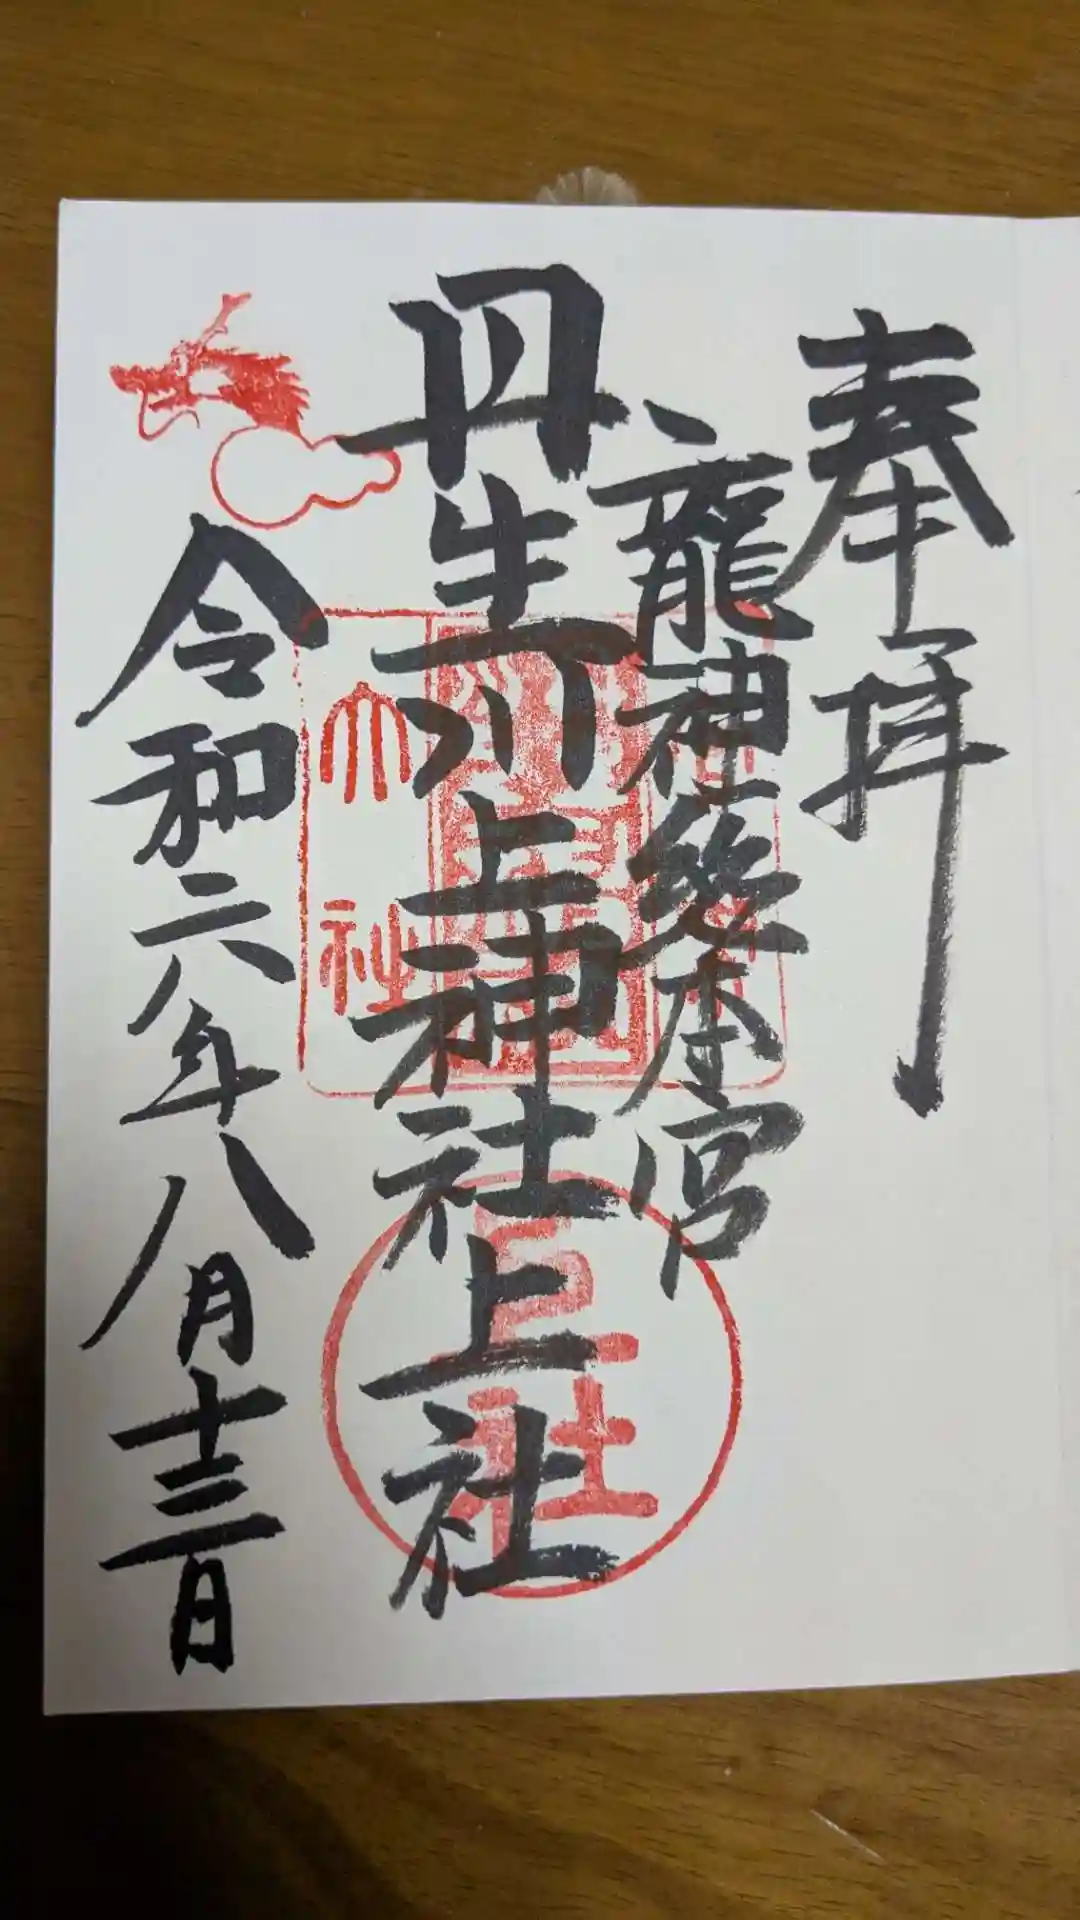 奉拝
龍神総本宮
丹生川上神社上社
令和六年八月十三日
大社
上社